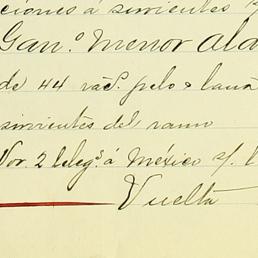 ciones á sirvientes
Gan.º menor
de 44 vac.s pelo
sirvientes del ramo
Por 2 teleg.s á México s/.
Vuelta